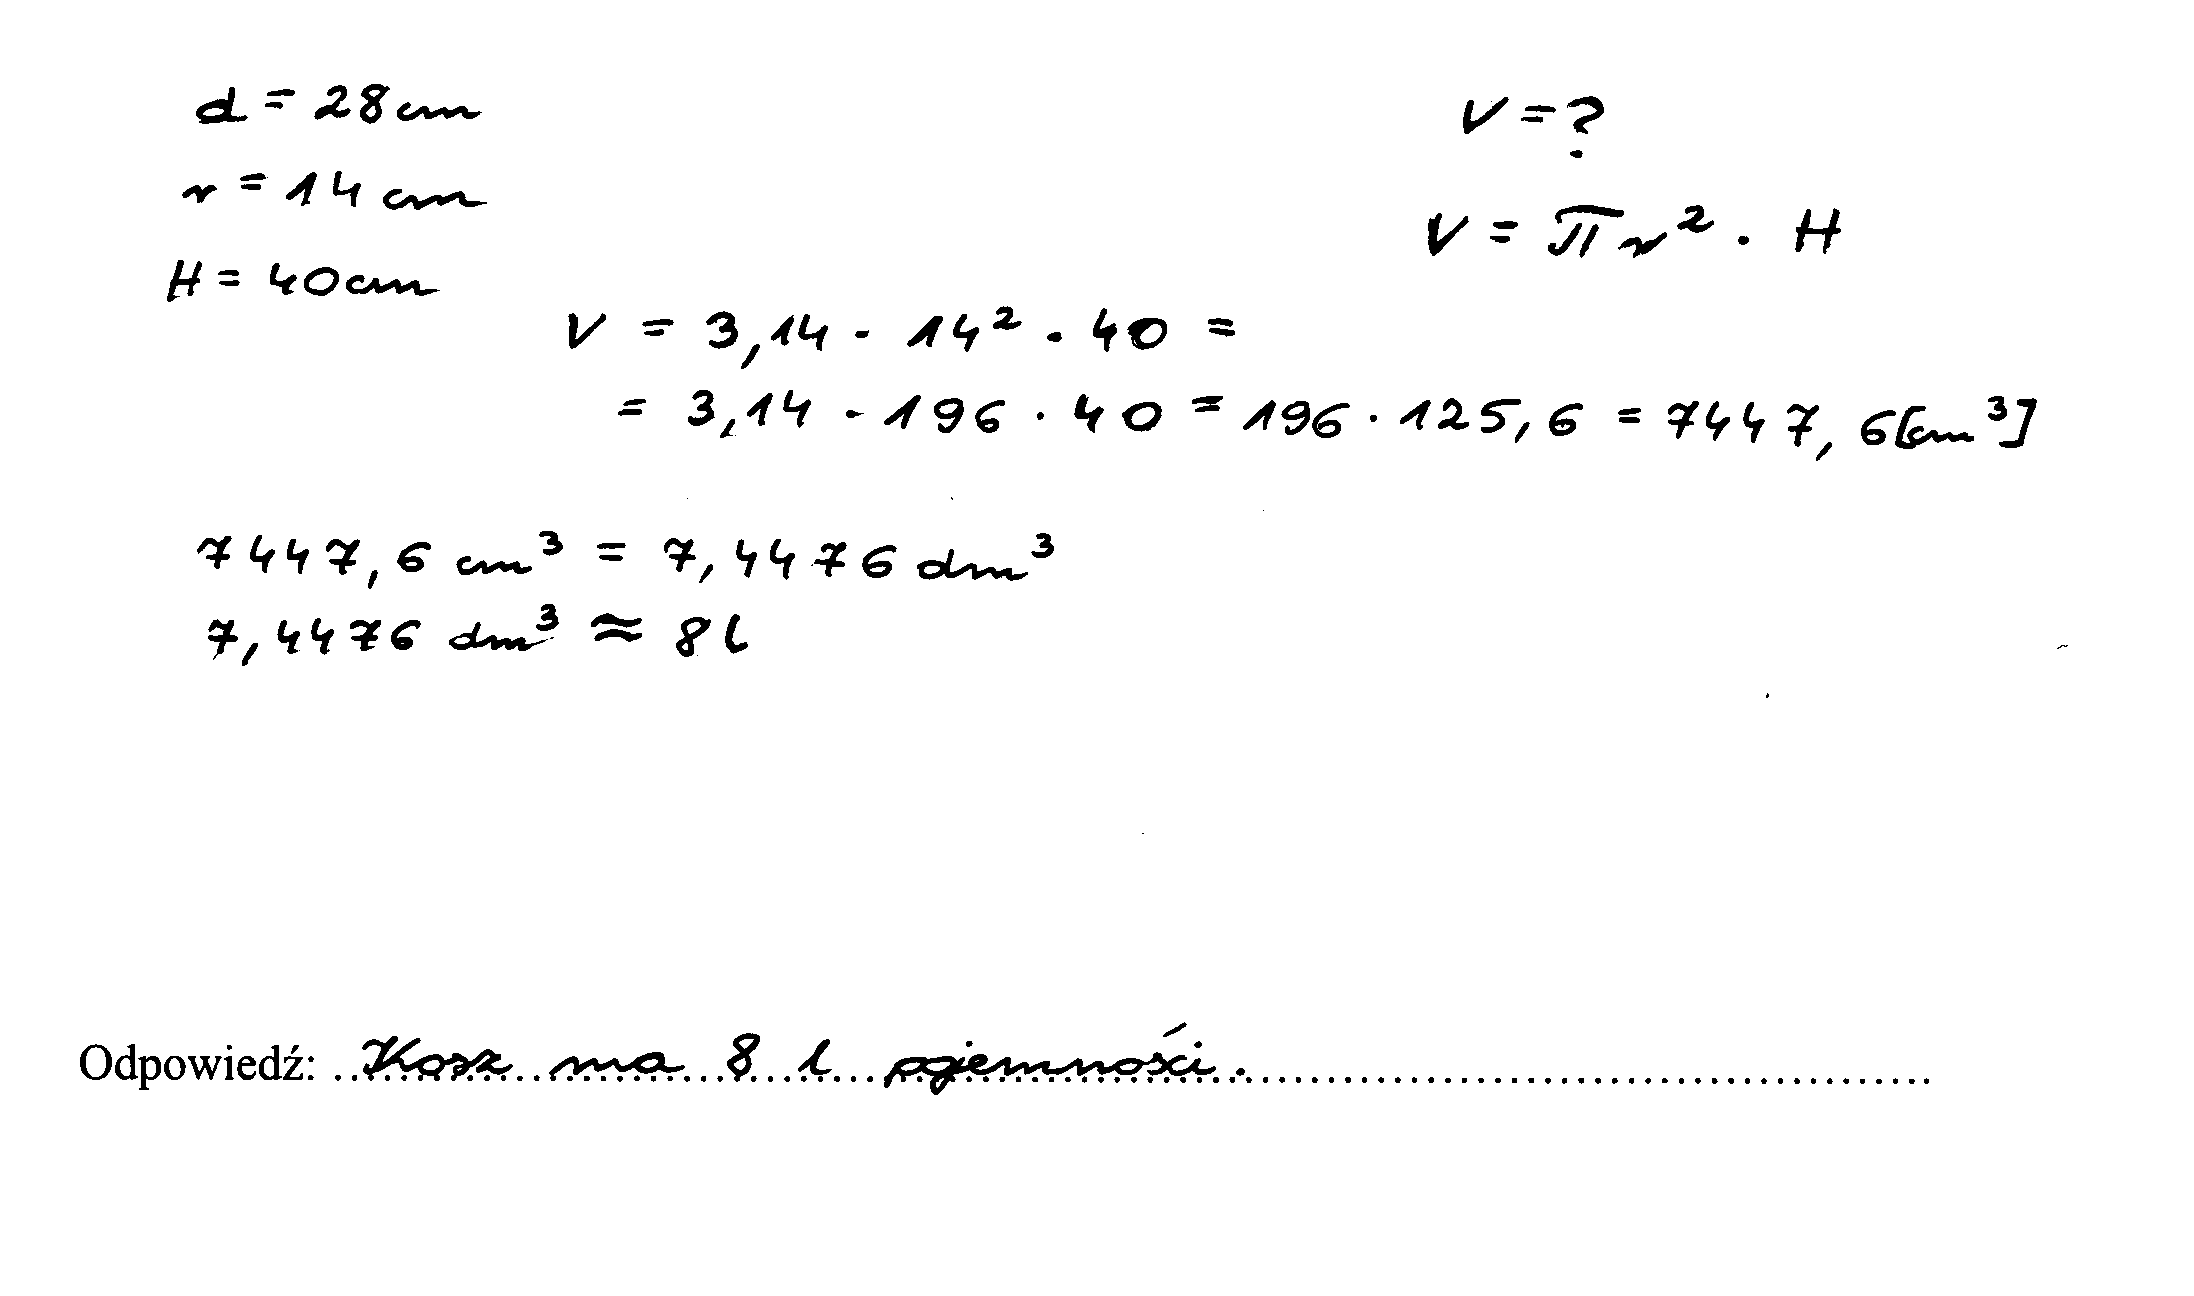 d = 28 cm
r = 14 cm
H = 40 cm
V = ?
V = πr² · H
V = 3,14 · 14² · 40 =
= 3,14 · 196 · 40 = 196 · 125,6 = 7447,6 [cm³]
7447,6 cm³ = 7,4476 dm³
7,4476 dm³ ≈ 8 l
Odpowiedź: Kosz ma 8 l pojemności.